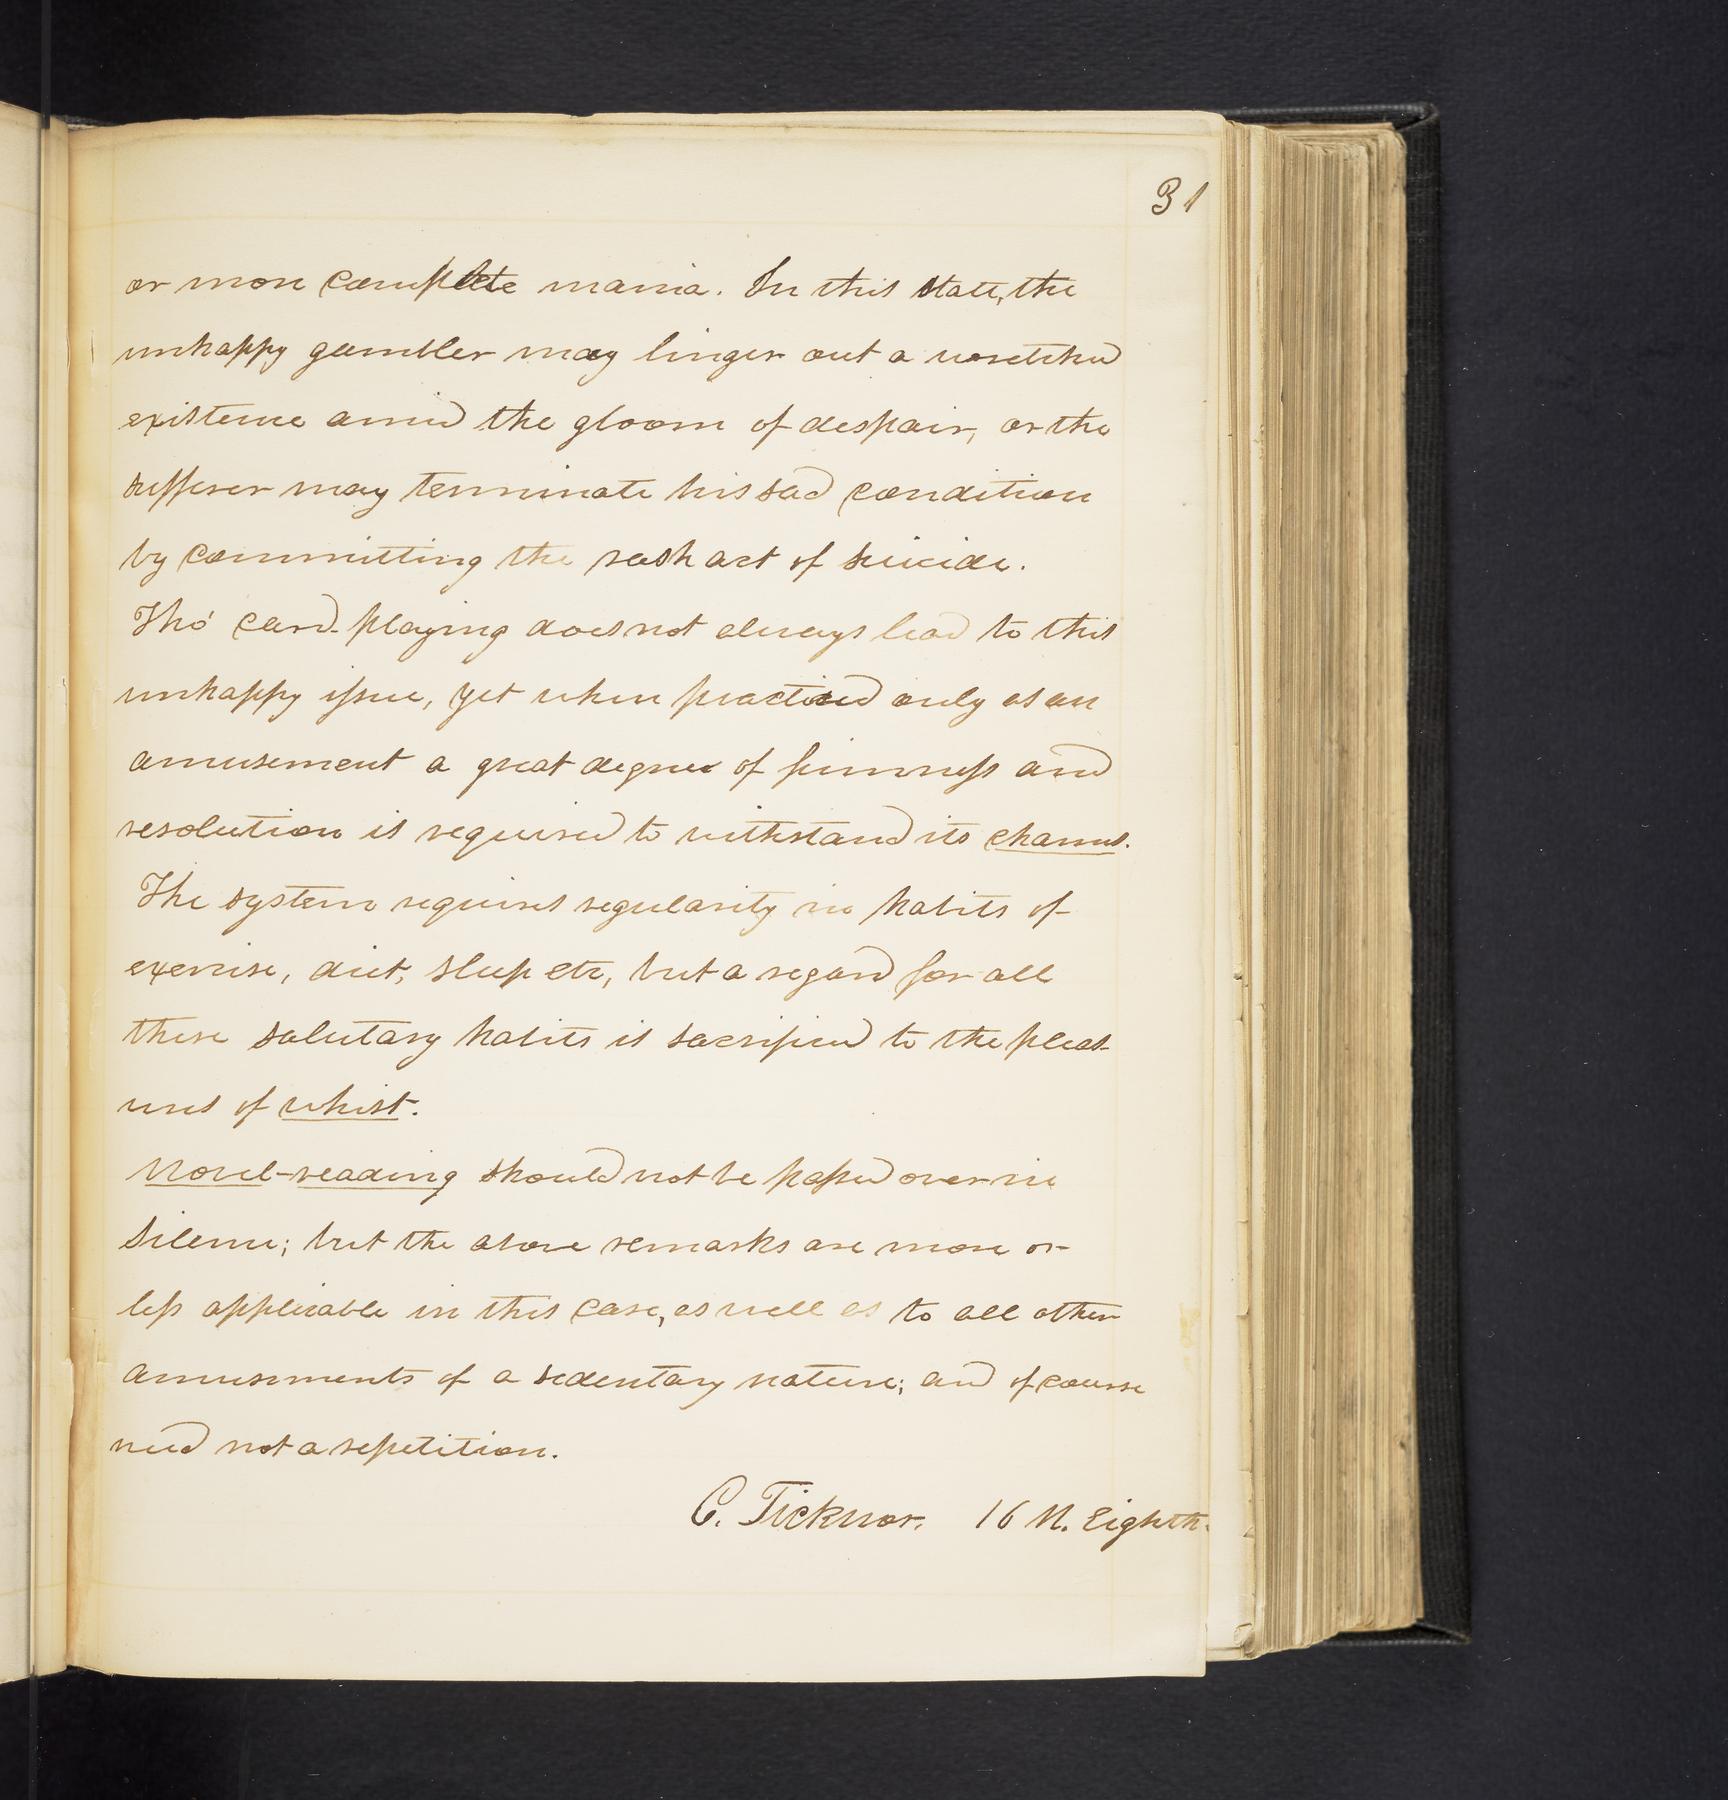 31
or more complete mania. In this state, the
unhappy gambler may linger out a wretched
existence amid the gloom of despair, or the
sufferer may terminate his sad condition
by committing the rash act of suicide.
Tho' card-playing does not always lead to this
unhappy issue, yet when practiced only as an
amusement a great degree of firmness and
resolution is required to withstand its charms.
The system requires regularity in habits of
exercise, diet, sleep etc, but a regard for all
these salutary habits is sacrificed to the pleas-
ures of whist.
Novel-reading should not be passed over in
silence; but the above remarks are more or
less applicable in this case, as well as to all other
amusements of a sedentary nature; and of course
need not a repetition.
C. Ticknor. 16 N. Eighth.